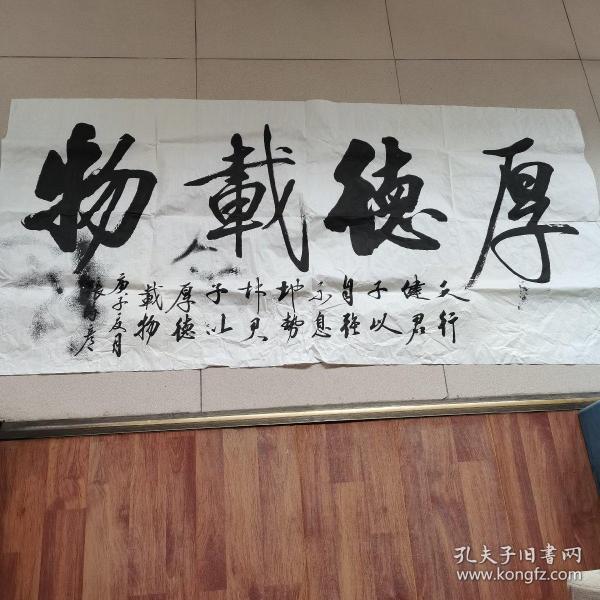 厚德載物
天行
健君
子以
自強
不息
地勢
坤君
子以
厚德
載物
庚子夏月
孔夫子旧书网
www.kongfz.com